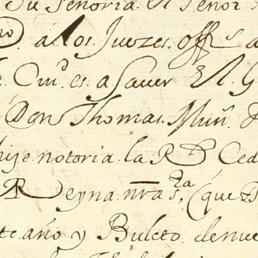 Su Señoria el Señor
á los Juezes. offs. a
Cui.º es. a saver El G
Don Thomas. Muñ.
hije. notoria. la Rl. Ced
Reyna. nrã. Sra. (que D
te. año y Buleto. de nue